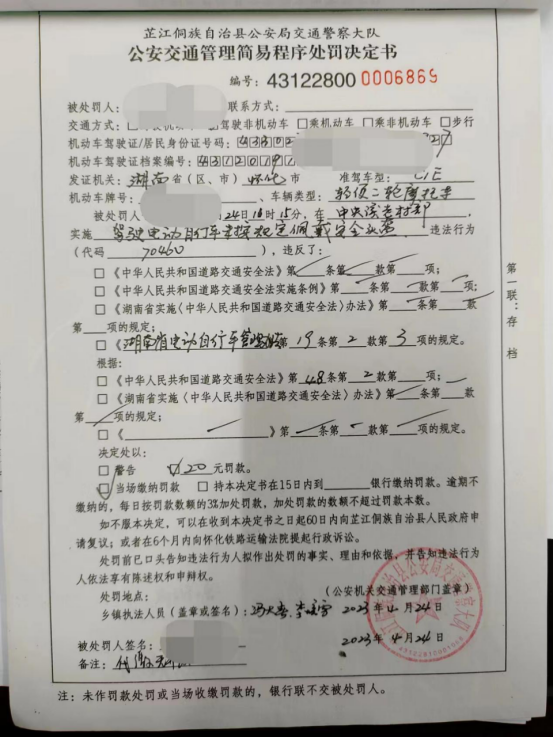 芷江侗族自治县公安局交通警察大队
公安交通管理简易程序处罚决定书
编号：43122800 0006869
被处罚人： 联系方式：
交通方式： 驾驶非机动车 □乘机动车 □乘非机动车 □步行
机动车驾驶证/居民身份证号码：
机动车驾驶证档案编号：
发证机关：湖南省（区、市）怀化市 准驾车型：C1E
机动车牌号： 、车辆类型：轻便二轮摩托车
被处罚人 24日16时15分，在
实施驾驶电动自行车未按规定佩戴安全头盔 违法行为
（代码 70460 ），违反了：
□《中华人民共和国道路交通安全法》第 条第 款第 项；
□《中华人民共和国道路交通安全法实施条例》第 条第 款第 项；
□《湖南省实施〈中华人民共和国道路交通安全法〉办法》第 条第 款
第 项的规定；
□《湖南省电动自行车管理办法 第19条第2款第3项的规定。
根据：
□《中华人民共和国道路交通安全法》第48条第2款第 项；
□《湖南省实施〈中华人民共和国道路交通安全法〉办法》第 条第 款
第 项的规定；
□《 》第 条第 款第 项的规定。
决定处以：
□警告 20元罚款。
□当场缴纳罚款 □持本决定书在15日内到 银行缴纳罚款。逾期不
缴纳的，每日按罚款数额的3%加处罚款，加处罚款的数额不超过罚款本数。
如不服本决定，可以在收到本决定书之日起60日内向芷江侗族自治县人民政府申
请复议；或者在6个月内向怀化铁路运输法院提起行政诉讼。
处罚前已口头告知违法行为人拟作出处罚的事实、理由和依据，并告知违法行为
人依法享有陈述权和申辩权。
处罚地点： （公安机关交通管理部门盖章）
乡镇执法人员（盖章或签名）： 2023年4月24日
被处罚人签名： 2023年4月24日
备注：
注：未作罚款处罚或当场收缴罚款的，银行联不交被处罚人。
第一联：存档